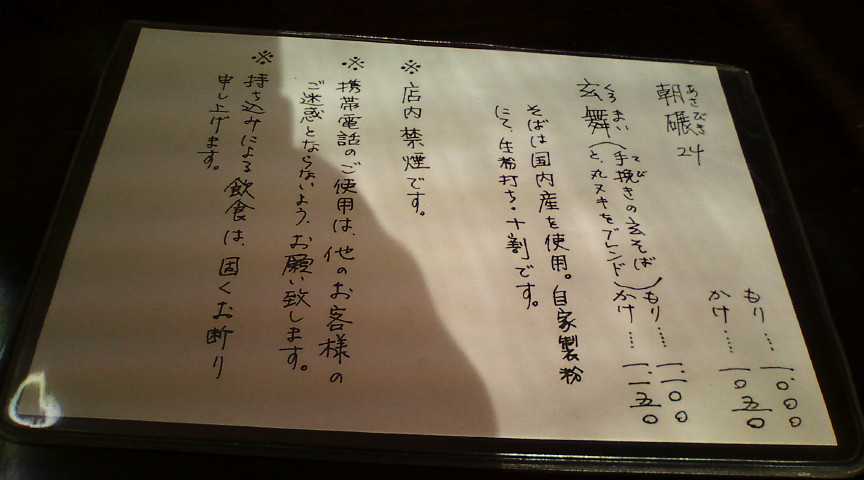 あさびき
朝碾 24
もり…… 一、〇〇〇
かけ…… 一〇五〇
くろまい
玄舞
てび
(手挽きの玄そば
と、丸ヌキをブレンド)
もり…… 一、一〇〇
かけ…… 一、一五〇
そばは国内産を使用。自家製粉
にて、生粉打ち・十割です。
※ 店内禁煙です。
※ 携帯電話のご使用は、他のお客様の
ご迷惑とならないよう、お願い致します。
※ 持ち込みによる飲食は、固くお断り
申し上げます。